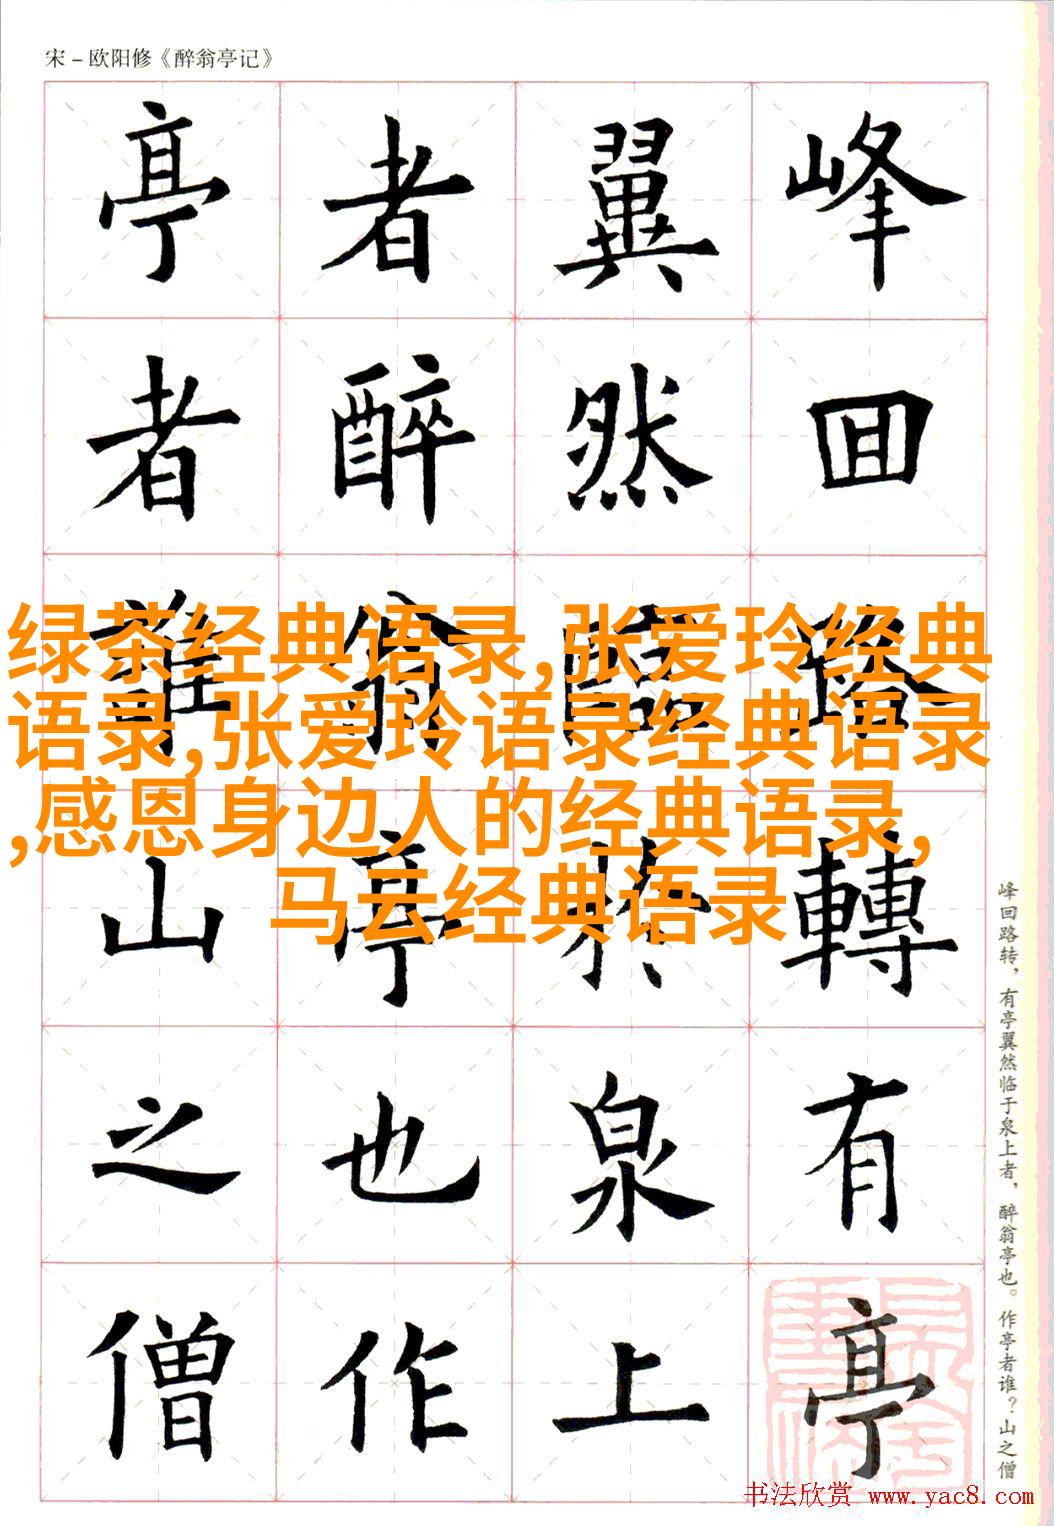 宋－欧阳修《醉翁亭记》
峰回路轉有亭
翼然臨於泉上
者醉翁亭也作
亭者誰山之僧
绿茶经典语录,张爱玲经典
语录,张爱玲语录经典语录
,感恩身边人的经典语录,
马云经典语录
峰回路转，有亭翼然临于泉上者，醉翁亭也。作亭者谁？山之僧
书法欣赏 www.yac8.com